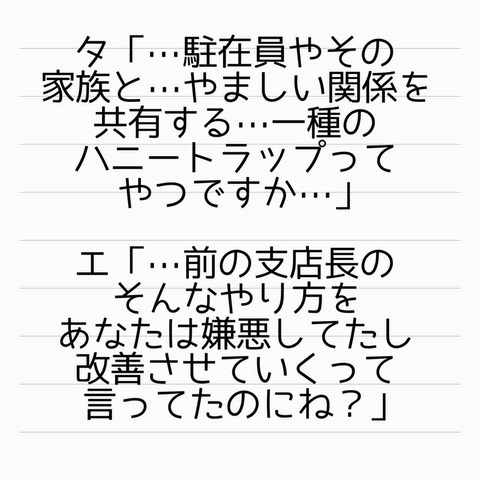 タ「…駐在員やその
家族と…やましい関係を
共有する…一種の
ハニートラップって
やつですか…」
エ「…前の支店長の
そんなやり方を
あなたは嫌悪してたし
改善させていくって
言ってたのにね？」